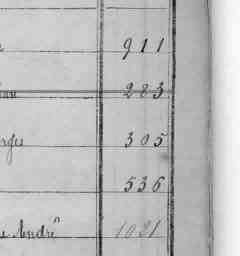 911
283
305
536
André 1021